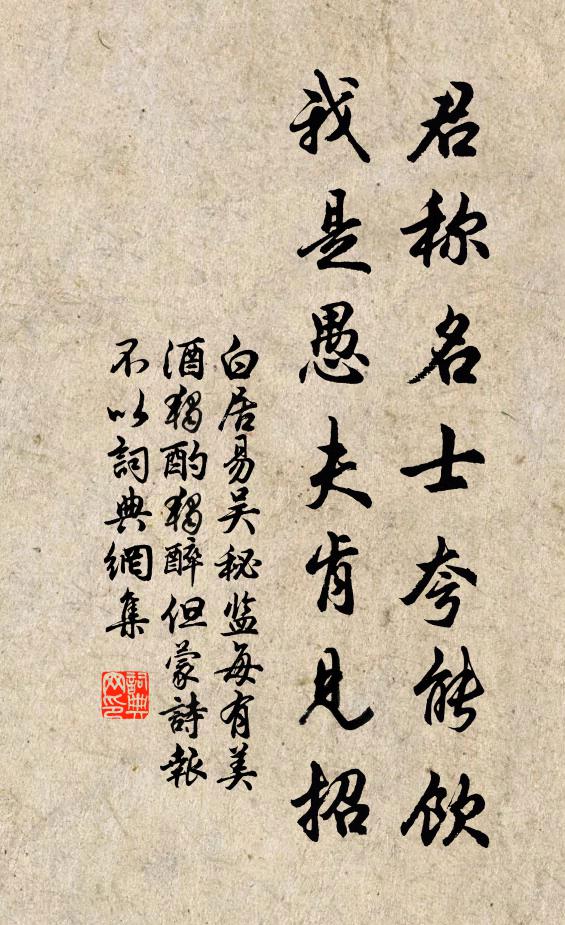 君称名士夸能饮
我是愚夫肯见招
白居易吴秘监每有美
酒獨酌獨醉但蒙詩報
不以詞典網集
詞典网印